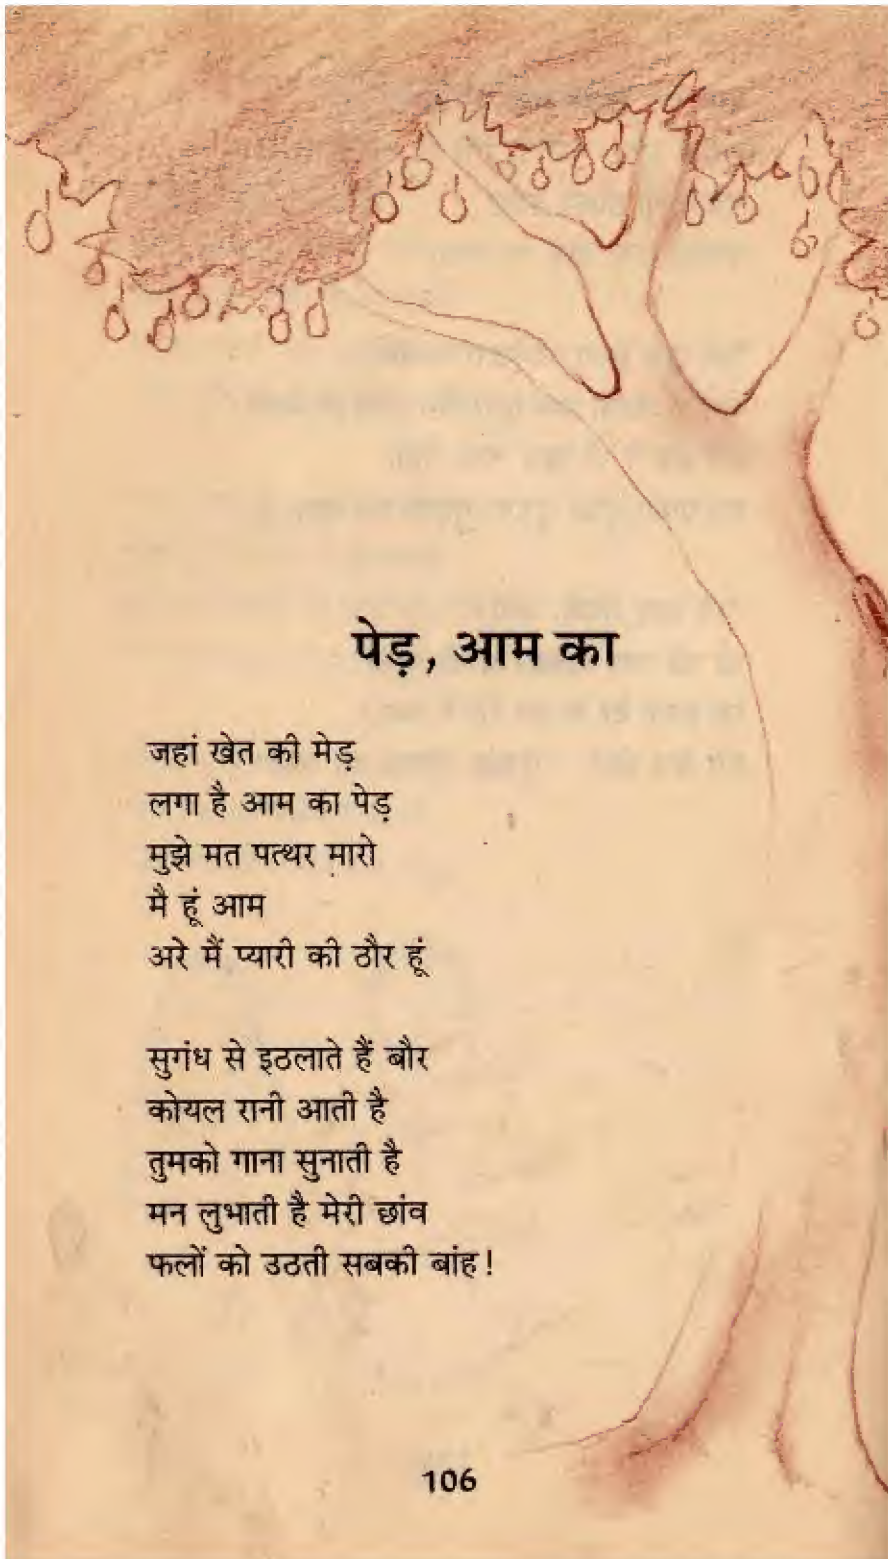 पेड़, आम का
जहां खेत की मेड़
लगा है आम का पेड़
मुझे मत पत्थर मारो
मै हूं आम
अरे मैं प्यारी की ठौर हूं
सुगंध से इठलाते हैं बौर
कोयल रानी आती है
तुमको गाना सुनाती है
मन लुभाती है मेरी छांव
फलों को उठती सबकी बांह!
106